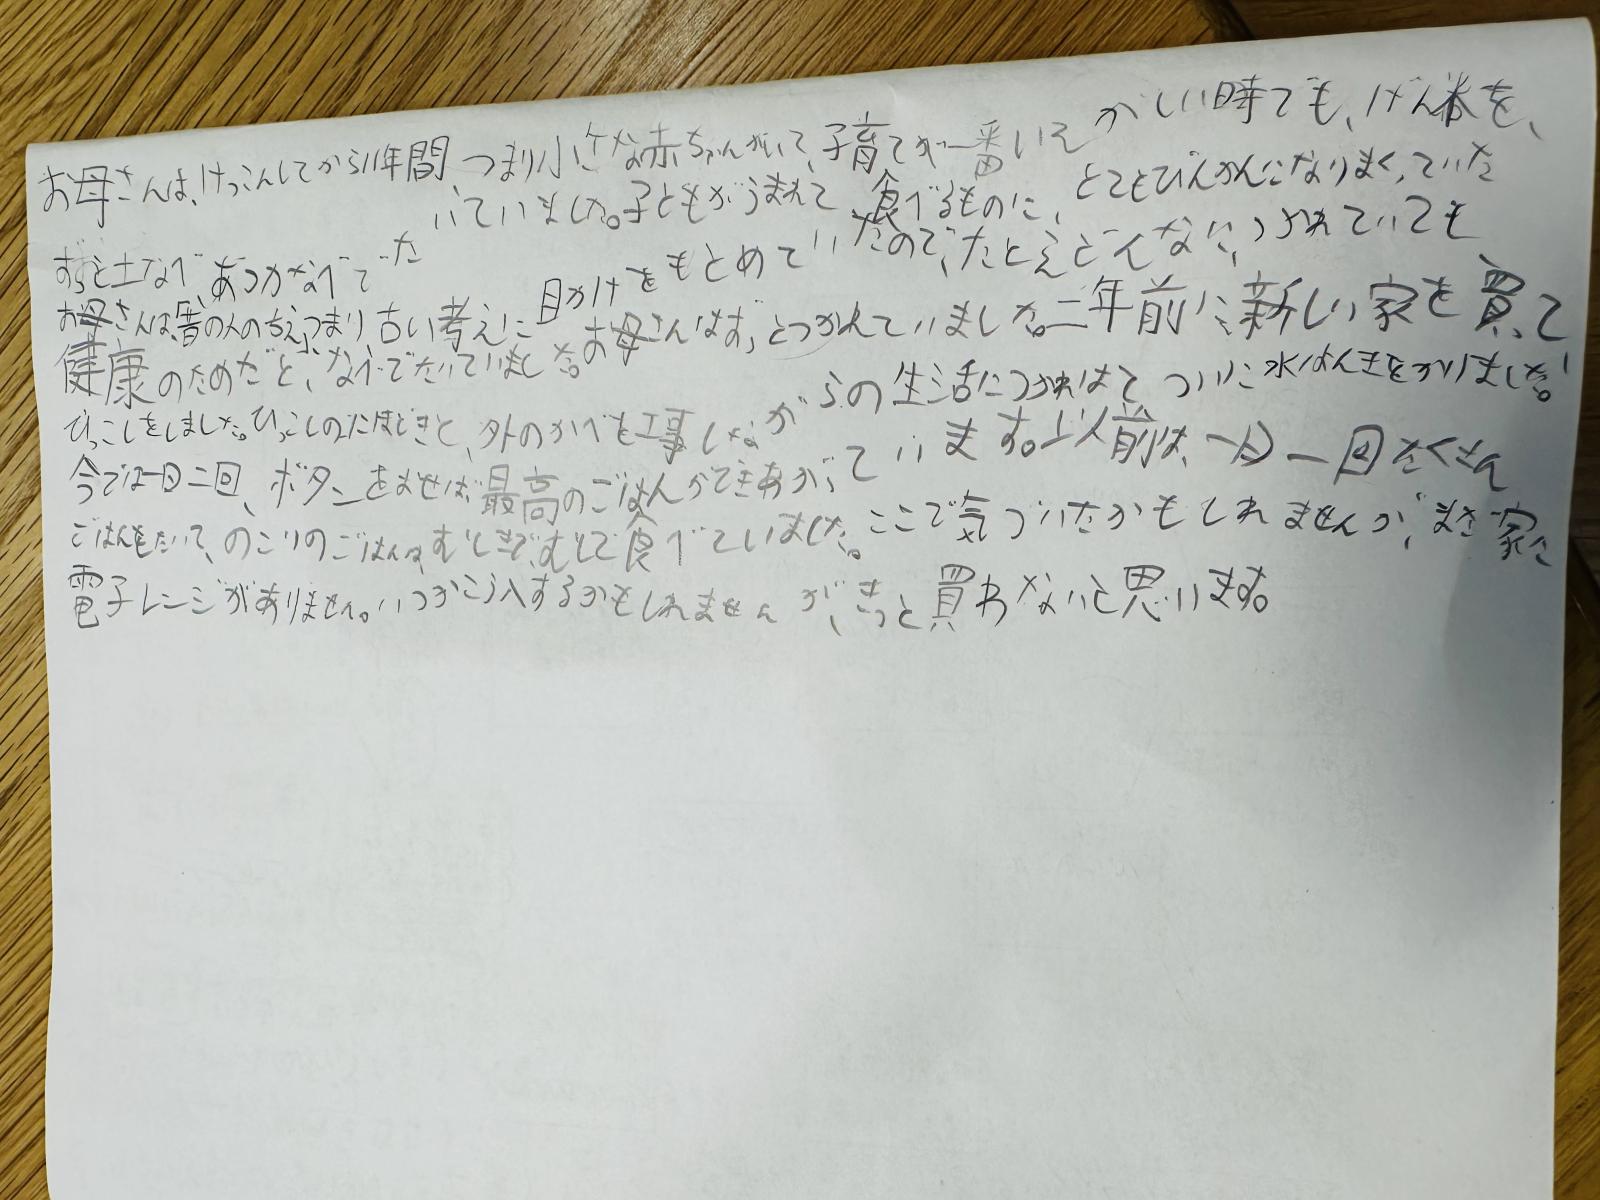 お母さんは、けっこんしてから11年間、つまり小さな赤ちゃんがいて、子育てが一番いそがしい時でも、げん米を、
ずっと土なべやあつかなべでたいていました。子どもがうまれて食べるものに、とてもびんかんになりまくっていた
お母さんは、昔の人のちえ、つまり、古い考えに目かけをもとめていたので、たとえどんなに、つかれていても、
健康のためだと、なべでたいていました。お母さんはずっとつかれていました。二年前に新しい家を買って
ひっこしをしました。ひっこしのにほどきと、外のかべを工事しながらの生活につかれはてついに水はんきをかりました。
今では一日二回、ボタンをおせば、最高のごはんができあがっています。以前は、一日一回たくさん
ごはんをたいて、のこりのごはんは、むしきで、むして食べていました。ここで気づいたかもしれませんが、まだ家に
電子レンジがありません。いつかこう入するかもしれませんが、きっと買わないと思います。